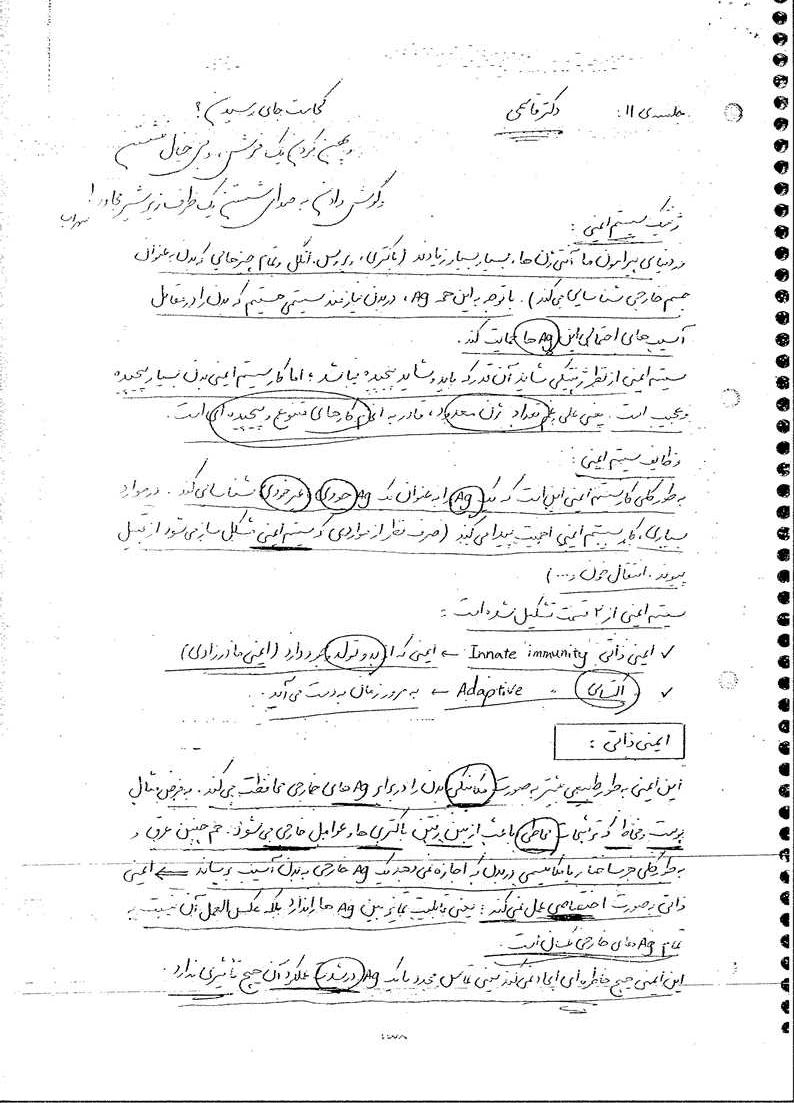 جلسه‌ی ۱۱: دکتر قاسمی
کجاست جای رسیدن؟
و پهن کردن یک فرش، و بی خیال نشستن
و گوش دادن به صدای شستن یک ظرف زیر شیر مجاور!
سهراب
ژنتیک سیستم ایمنی:
در دنیای پیرامون ما آنتی ژن ها، بسیار بسیار زیادند (باکتری، ویروس، انگل و تمام چیزهایی که بدن به عنوان
جسم خارجی شناسایی می‌کند). با توجه به این همه Ag، در بدن نیازمند سیستمی هستیم که بدن را در مقابل
آسیب های احتمالی این Ag ها حمایت کند.
سیستم ایمنی از نظر ژنتیکی شاید آن قدر که باید و شاید پیچیده نباشد؛ اما کار سیستم ایمنی بدن بسیار پیچیده
و عجیب است. یعنی علی رغم تعداد ژن محدود، قادر به انجام کارهای متنوع و پیچیده ای است.
وظایف سیستم ایمنی:
به طور کلی کار سیستم ایمنی این است که یک Ag را به عنوان یک Ag خودی غیرخودی شناسایی کند. در موارد
بسیاری، کار سیستم ایمنی اهمیت پیدا می‌کند (صرف نظر از مواردی که سیستم ایمنی مشکل ساز می‌شود از قبیل
پیوند، انتقال خون و...)
سیستم ایمنی از ۲ قسمت تشکیل شده است:
✓ ایمنی ذاتی Innate immunity ← ایمنی که از بدو تولد وجود دارد (ایمنی مادرزادی)
✓ " اکتسابی Adaptive ← به مرور زمان به دست می‌آید.
ایمنی ذاتی:
این ایمنی به طور طبیعی بیشتر به صورت مکانیکی بدن را در برابر Ag های خارجی محافظت می‌کند. به فرض مثال
پوست و مخاط که ترشحات مخاطی باعث از بین رفتن باکتری ها و عوامل خارجی می‌شود. هم چنین عرق و
به طور کلی هر ساختار یا مکانیسمی در بدن که اجازه نمی‌دهد یک Ag خارجی به بدن آسیب برساند ← ایمنی
ذاتی به صورت اختصاصی عمل نمی‌کند؛ یعنی قابلیت تمایز بین Ag ها را ندارد بلکه عکس العمل آن نسبت به
تمام Ag های خارجی یکسان است.
این ایمنی هیچ خاطره ای ایجاد نمی‌کند یعنی تماس مجدد با یک Ag در شدت عملکرد آن هیچ تاثیری ندارد.